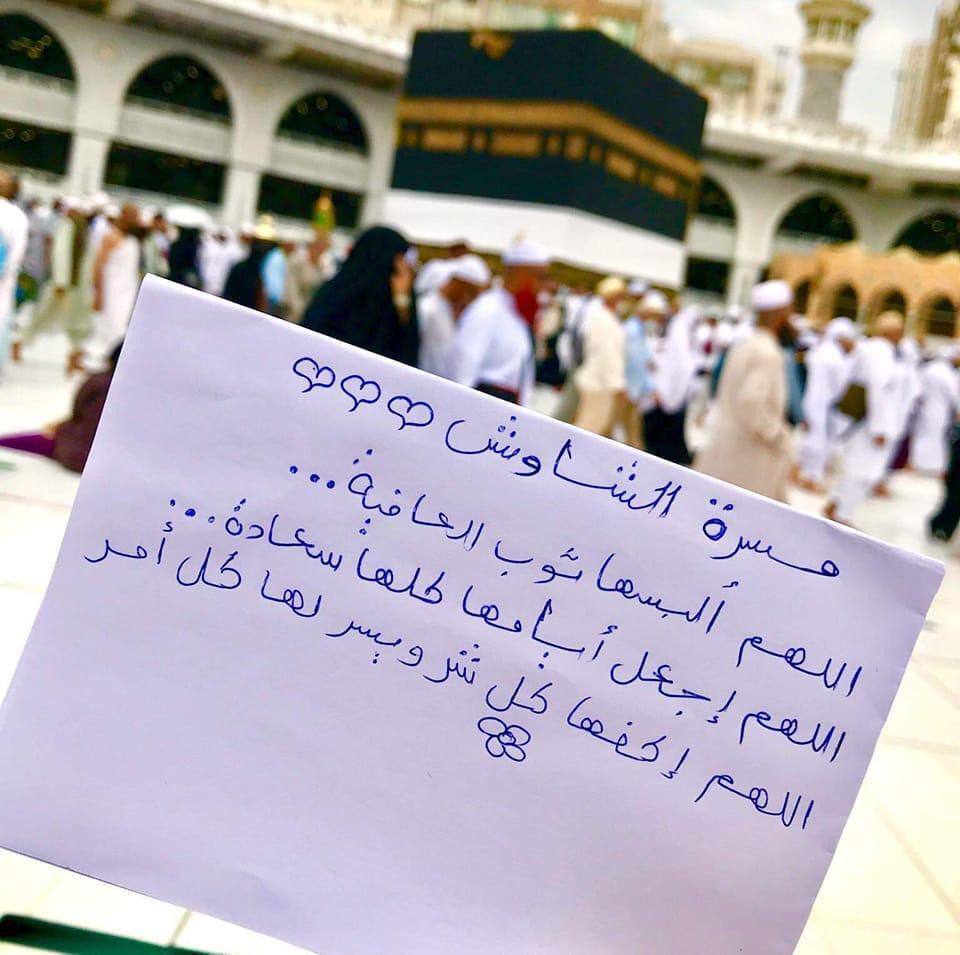 مسرة الشاوش
اللهم ألبسها ثوب العافية...
اللهم إجعل أيامها كلها سعادة...
اللهم إكفها كل شر ويسر لها كل أمر